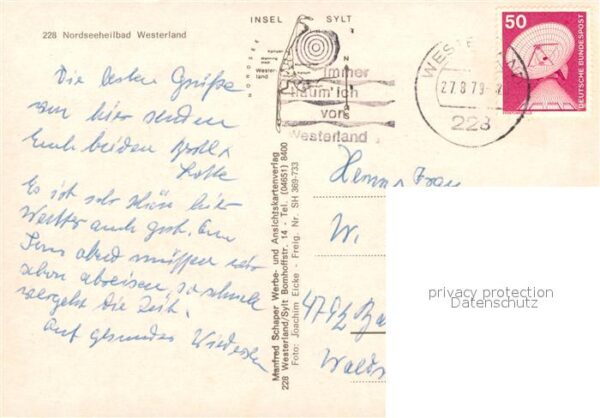 228 Nordseeheilbad Westerland
INSEL SYLT
NORDSEE
Wester-
land
immer
träum' ich
von
Westerland
27.8.79
228
50
DEUTSCHE BUNDESPOST
Die besten Grüße
von hier senden
Euch beiden
Lotte
Es ist sehr schön hier
Wetter auch gut.
müssen wir
schon abreisen, so schnell
vergeht die Zeit.
Auf gesundes Wiedersehen
Manfred Schaper Werbe- und Ansichtskartenverlag
228 Westerland/Sylt Bomhoffstr. 14 - Tel. (04651) 8400
Foto: Joachim Eicke - Freig. Nr. SH 369-733
Herrn u. Frau
W.
4792 Ba
Walds
privacy protection
Datenschutz